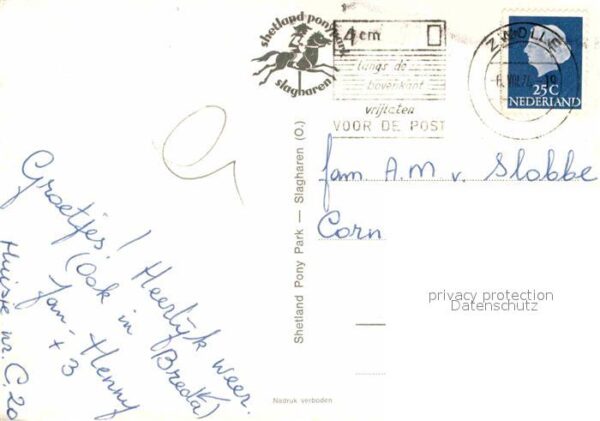 shetland pony park
slagharen
4 cm
langs de
bovenkant
vrijlaten
VOOR DE POST
ZWOLLE
25C
NEDERLAND
Groetjes! Heerlijk weer.
(Ook in Breda)
Jan - Henny
+ 3
Huisje nr. C. 20
Shetland Pony Park — Slagharen (O.)
fam. A.M v. Slobbe
Corn
privacy protection
Datenschutz
Nadruk verboden